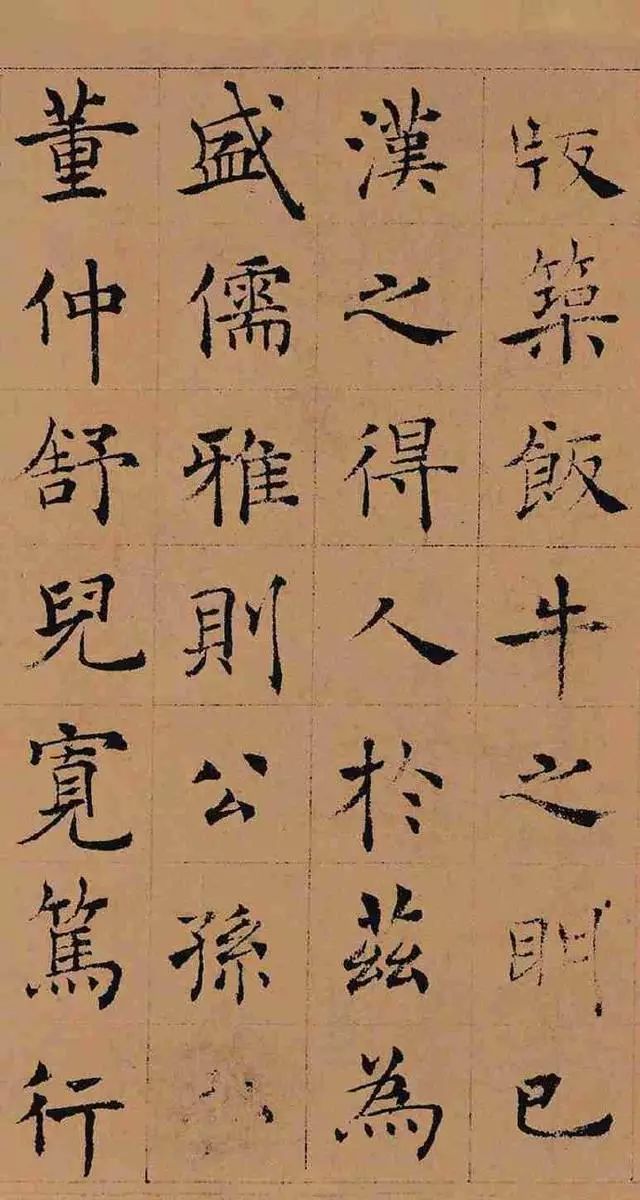 版築飯牛之明已
漢之得人於茲為
盛儒雅則公孫
董仲舒兒寬篤行